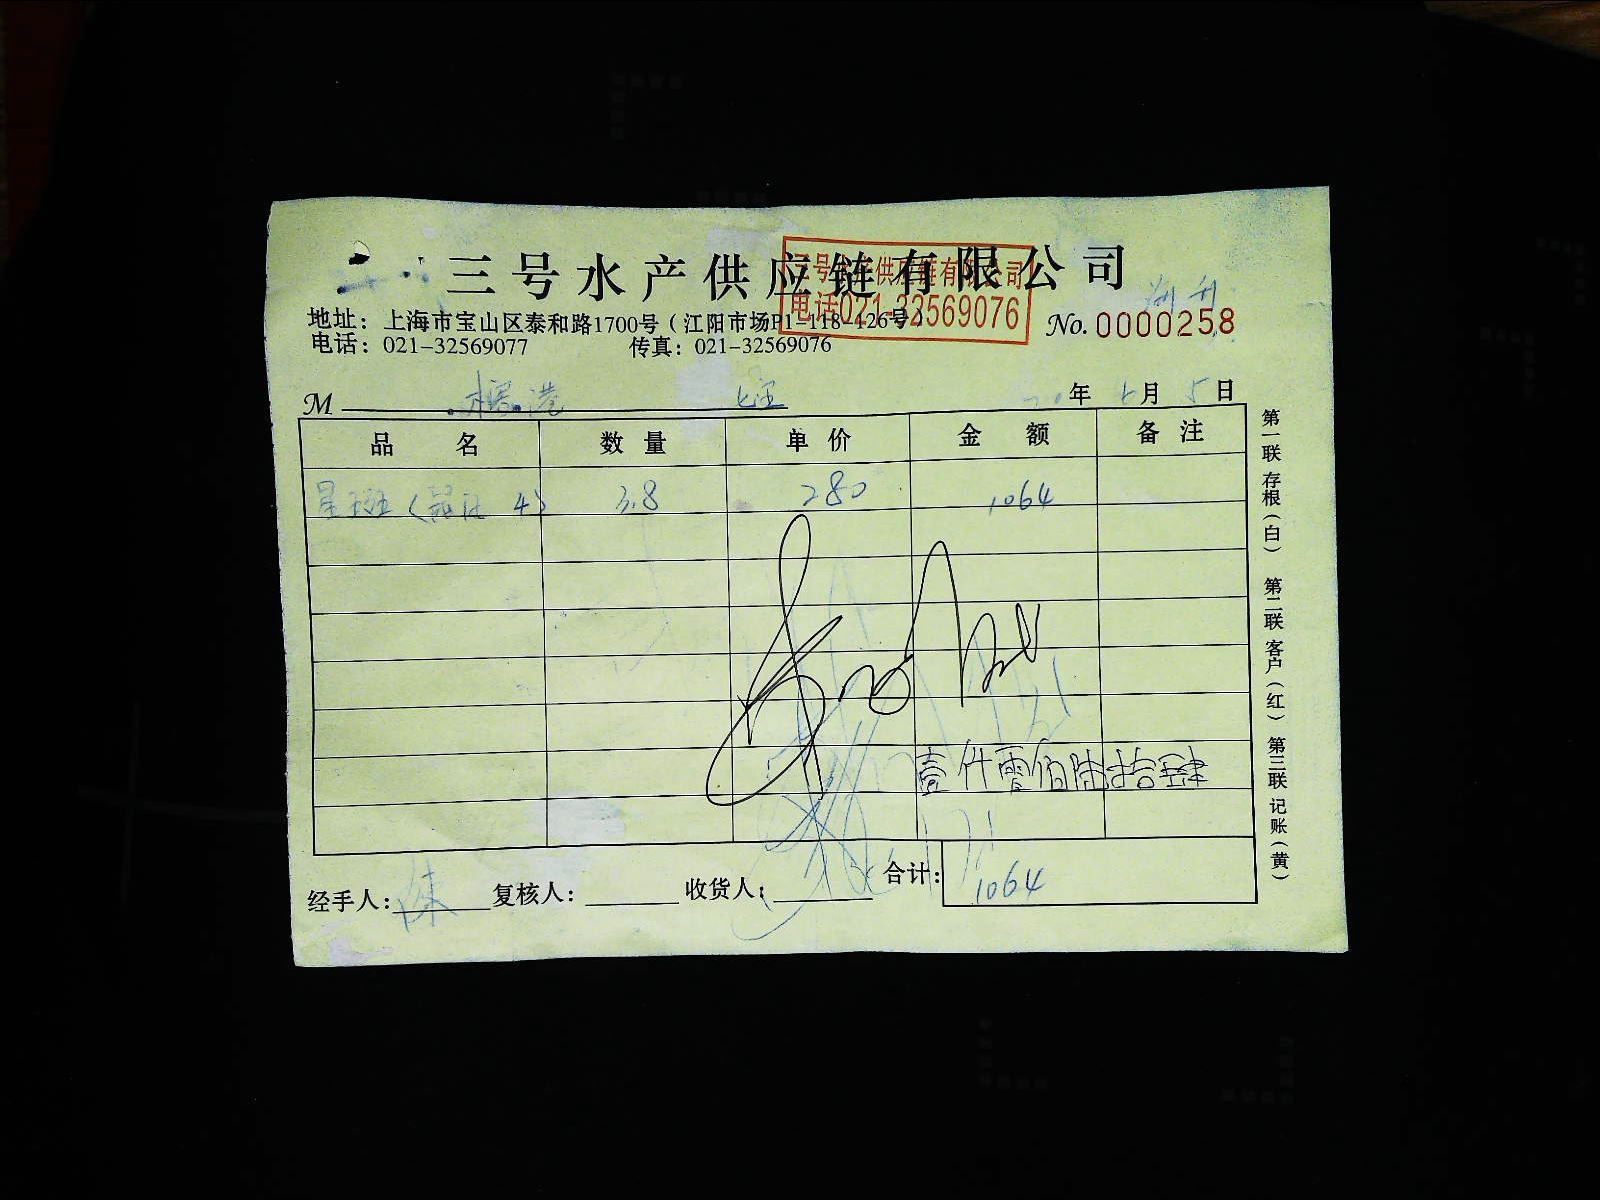 三号水产供应链有限公司
三号水产供应链有限公司
电话021-32569076
地址：上海市宝山区泰和路1700号（江阳市场P1-118-126号）
No. 0000258
电话：021-32569077 传真：021-32569076
M 年 月 5 日
品名 数量 单价 金额 备注
星斑（ 4） 3.8 280 1064
壹仟零佰陆拾肆
经手人：陈 复核人： 收货人： 合计：1064
第一联 存根（白） 第二联 客户（红） 第三联 记账（黄）